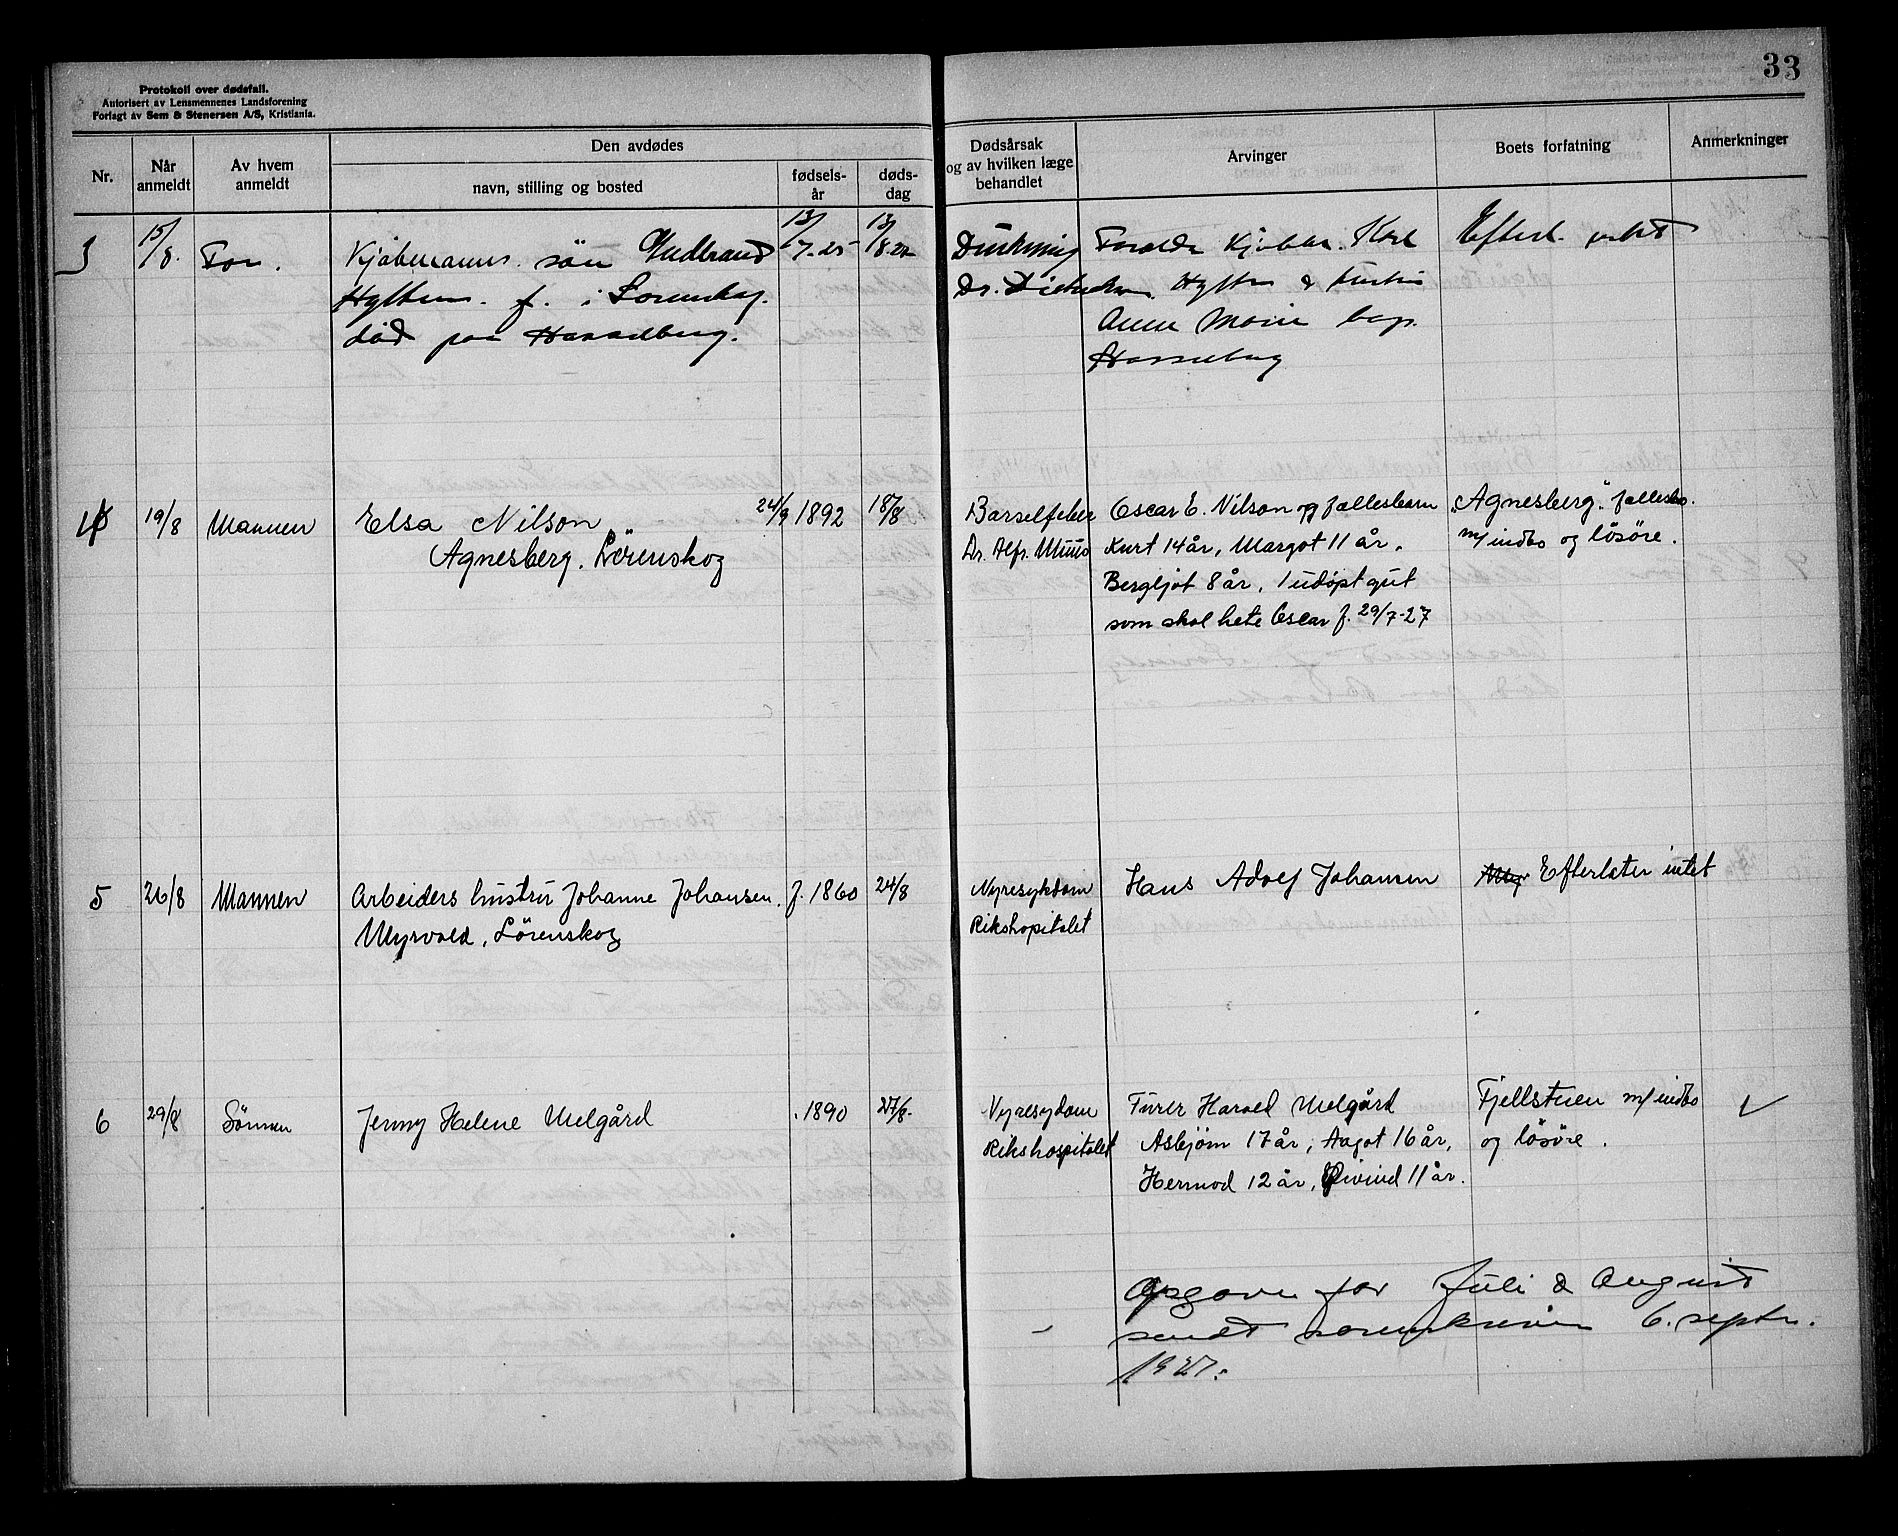 33
Protokoll over dødsfall.
Autorisert av Lensmennenes Landsforening
Forlagt av Sem & Stenersen A/S, Kristiania.
Nr.
Når anmeldt
Av hvem anmeldt
Den avdødes
navn, stilling og bosted
fødsels-år
døds-dag
Dødsårsak og av hvilken læge behandlet
Arvinger
Boets forfatning
Anmerkninger
3 15/8. Far. Kjøbmanns søn Gudbrand 13/7-25 13/8.27
f. i Lørenskog.
død paa
Drukning Kjøbm. Karl
Dr. &
Anna Marie
Efterl. intet
4 19/8 Mannen Elsa Nilson 24/9 1892 18/8
Agnesberg. Lørenskog
Barselfeber Oscar E. Nilson og fællesbarn "Agnesberg". fællesbo.
Dr. Alfr. Muus Kurt 14 år, Margot 11 år. m/indbo og løsøre.
Bergljot 8 år, 1 udøpt gut
som skal hete Oscar f. 29/7-27
5 26/8 Mannen Arbeiders hustru Johanne Johansen. f. 1860 24/8
Myrvold, Lørenskog
Nyresykdom Hans Adolf Johansen Efterlater intet
Rikshopitalet
6 29/8 Sønnen Jenny Helene Melgård 1890 27/8.
Nyresydom Harald Melgård Fjellstuen m/indbo
Rikshospitalet Asbjørn 17 år, Aagot 16 år, og løsøre.
Hermod 12 år, Øivind 11 år.
Opgave for Juli & August
sendt sorenskriveren 6. septr.
1927.